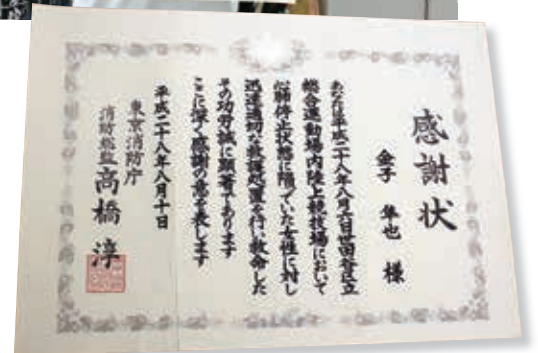 感謝状
金子 隼也 様
あなたは平成二十八年八月六日世田谷区立
総合運動場内陸上競技場において
心肺停止状態に陥っていた女性に対し
迅速適切な救護処置を行い救命した
その功労誠に顕著であります
ここに深く感謝の意を表します
平成二十八年八月十日
東京消防庁
消防総監 高橋 淳